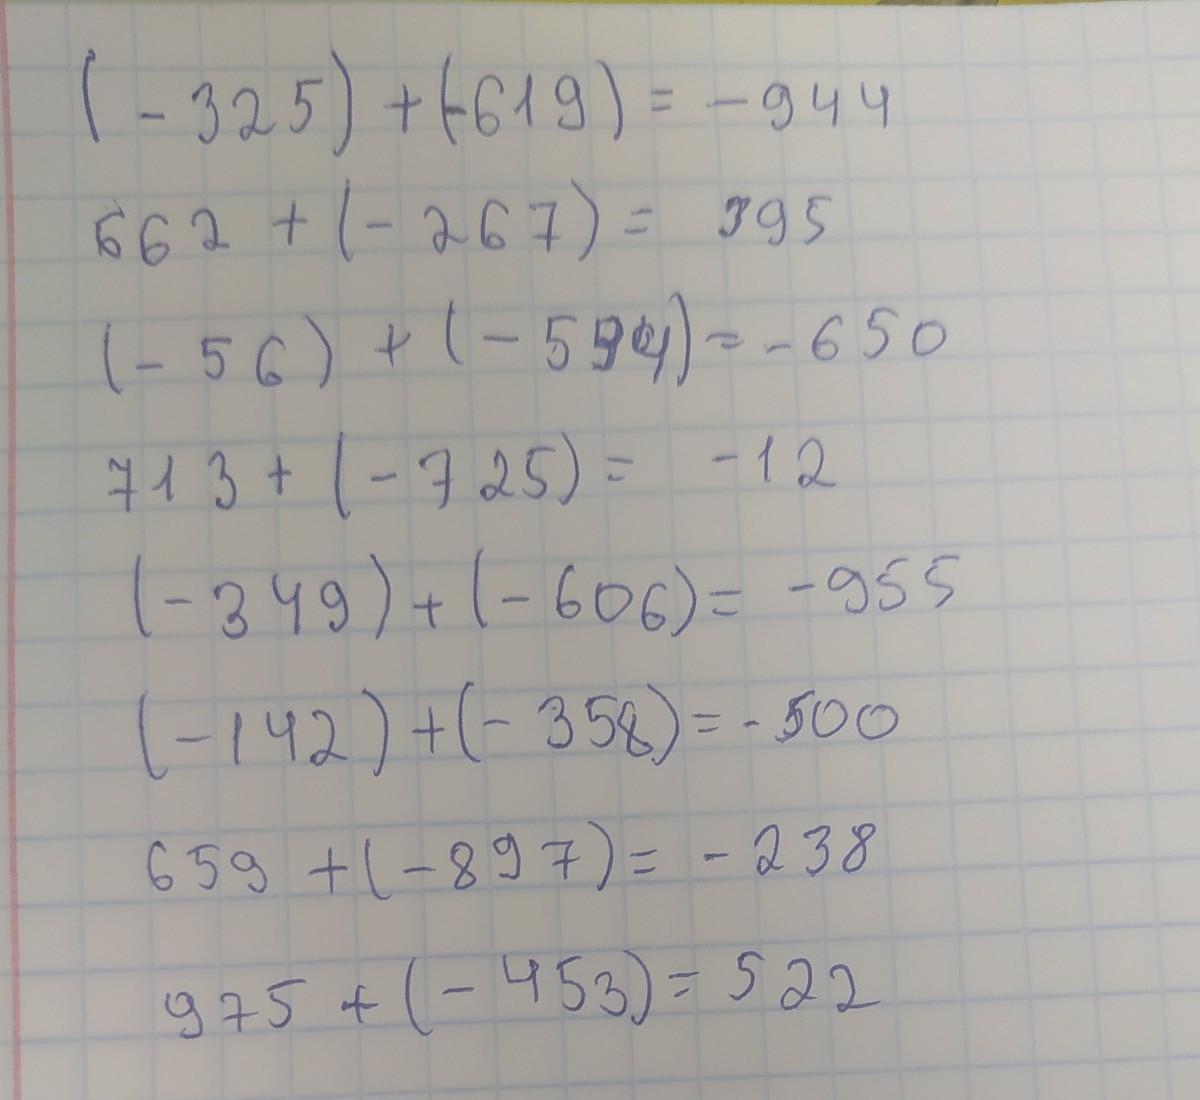 (-325) + (-619) = -944
662 + (-267) = 395
(-56) + (-594) = -650
713 + (-725) = -12
(-349) + (-606) = -955
(-142) + (-358) = -500
659 + (-897) = -238
975 + (-453) = 522